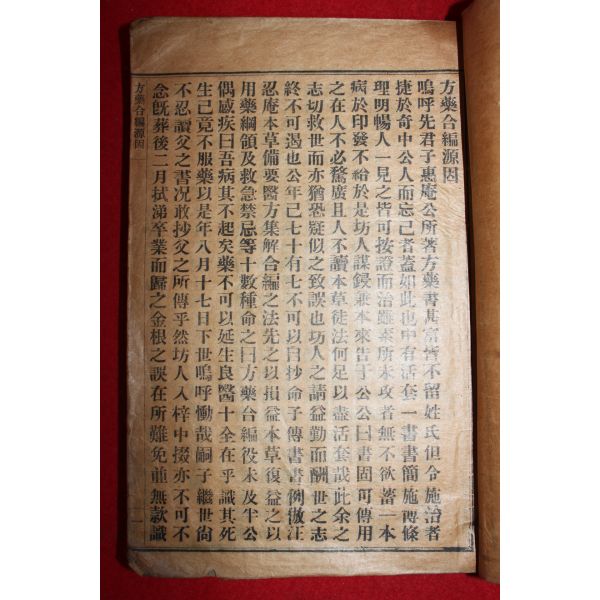 方藥合編源因
嗚呼先君子惠庵公所著方藥書甚富皆不留姓氏但令施治者
捷於奇中公人而忘己者蓋如此也中有活套一書書簡施博條
理明暢人一見之皆可按證而治雖素所未攻者無不欲蓄一本
病於印發不給於是坊人謀鋟兼本來告于公公曰書固可傳用
之在人不必騖廣且人不讀本草徒法何足以盡活套哉此余之
志切救世而亦猶恐疑似之致誤也坊人之請益勤而酬世之志
終不可遏也公年已七十有七不可以自抄命子傳書書例倣汪
忍庵本草備要醫方集解合編之法先之以損益本草復益之以
用藥綱領及救急禁忌等十數種命之曰方藥合編役未及半公
偶感疾曰吾病其不起矣藥不可以延生良醫十全在乎識其死
生已竟不服藥以是年八月十七日下世嗚呼慟哉嗣子繼世尙
不忍讀父之書況敢抄父之所傳乎然坊人入梓中掇亦不可不
念旣葬後二月拭涕卒業而歸之金根之誤在所難免並無款識
方藥合編源因
一